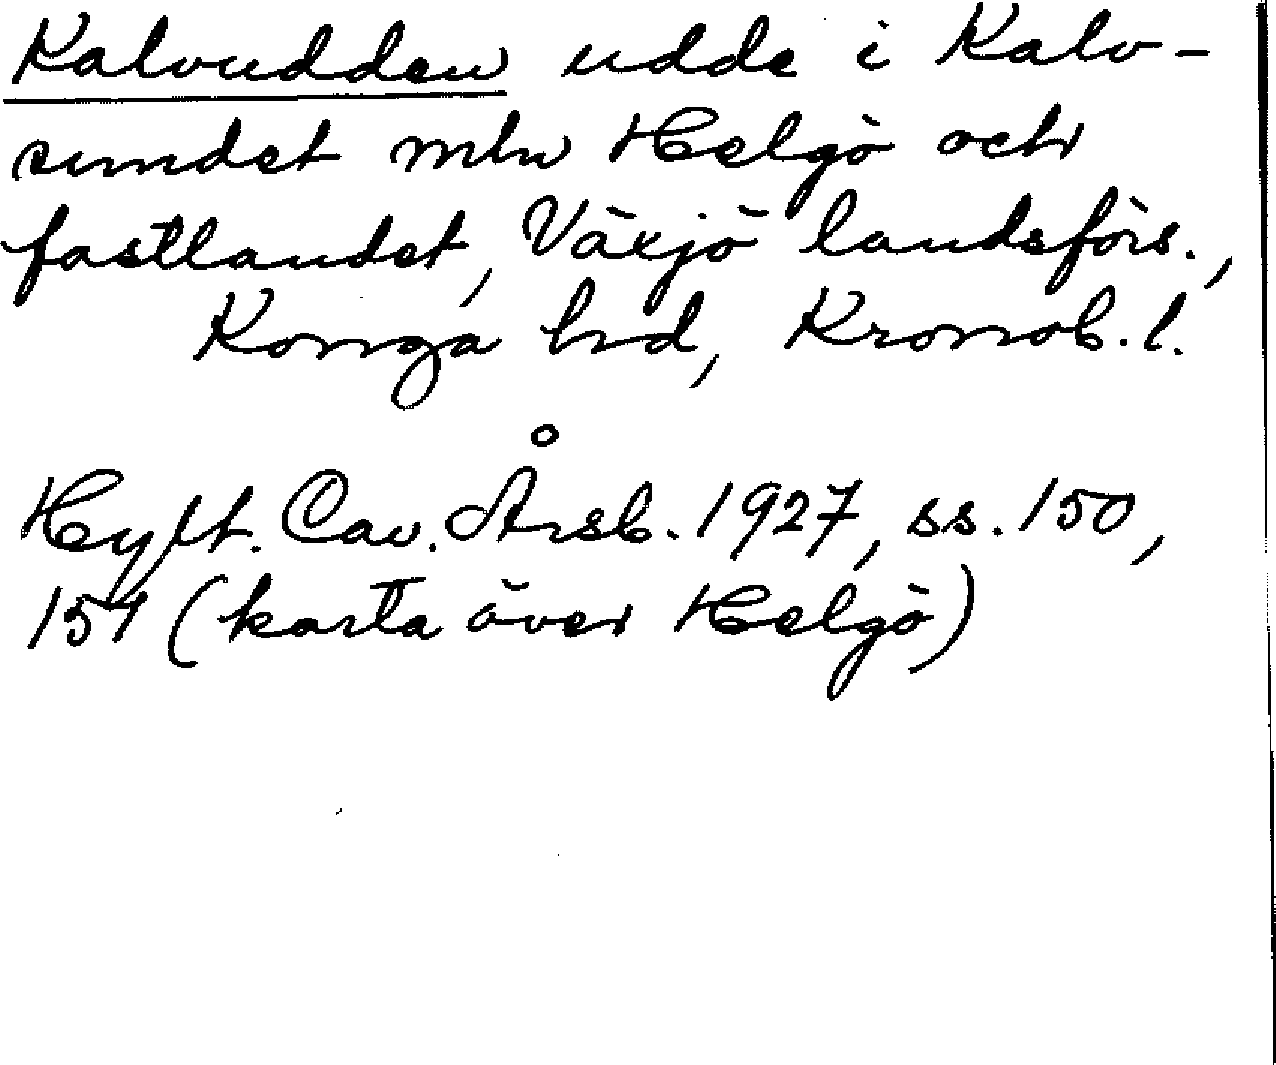 Kalvudden udde i Kalv-
sundet mln Helgö och
fastlandet, Växjö landsförs.,
Konga hrd, Kronob. l.
Hylt. Cav. Årsb. 1927, ss. 150,
154 (karta över Helgö)